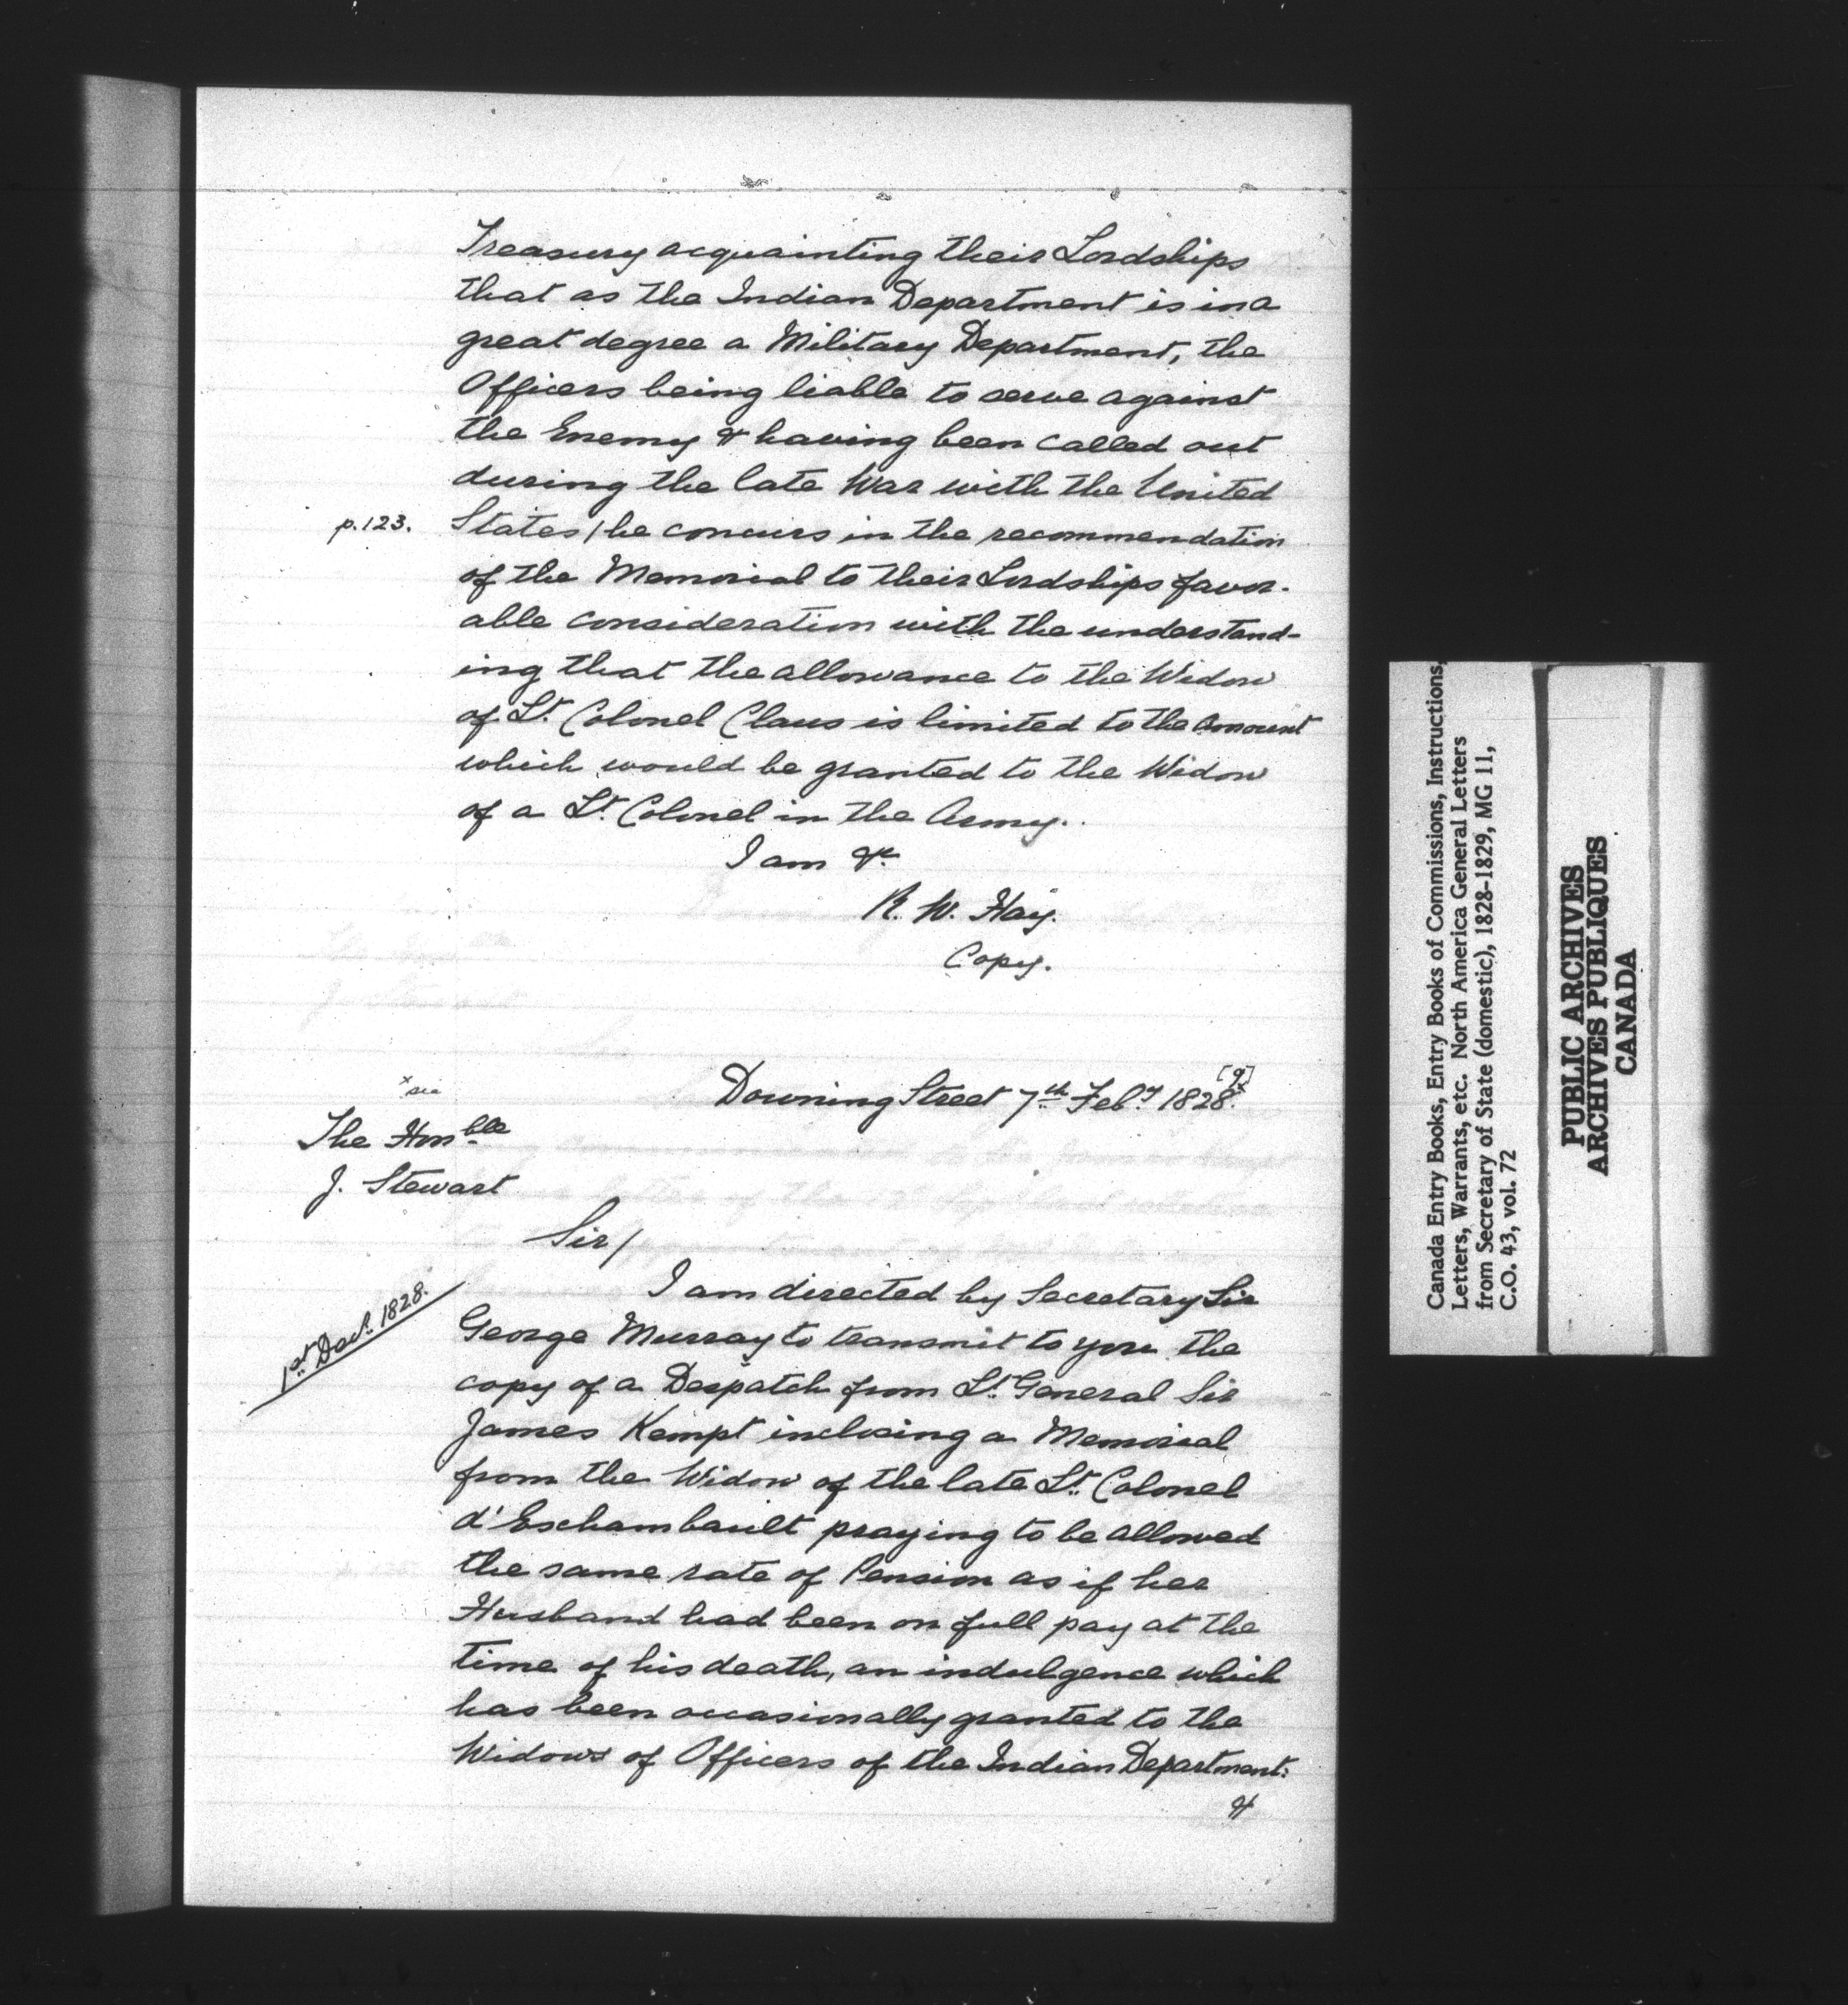 Treasury acquainting their Lordships
that as the Indian Department is in a
great degree a Military Department, the
Officers being liable to serve against
the Enemy & having been called out
during the late War with the United
p.123. States / he concurs in the recommendation
of the Memorial to their Lordships favor-
able consideration with the understand-
ing that the allowance to the Widow
of Lt. Colonel Claus is limited to the amount
which would be granted to the Widow
of a Lt. Colonel in the Army.
I am &c
R. W. Hay.
Copy.
[9]
x sic
Downing Street 7th Feby 1828.x
The Honble
J. Stewart
Sir/
I am directed by Secretary Sir
1st Decr. 1828.
George Murray to transmit to you the
copy of a Despatch from Lt. General Sir
James Kempt inclosing a Memorial
from the Widow of the late Lt. Colonel
d'Eschambault praying to be allowed
the same rate of Pension as if her
Husband had been on full pay at the
time of his death, an indulgence which
has been occasionally granted to the
Widows of Officers of the Indian Department:
&
Canada Entry Books, Entry Books of Commissions, Instructions,
Letters, Warrants, etc. North America General Letters
from Secretary of State (domestic), 1828-1829, MG 11,
C.O. 43, vol. 72
PUBLIC ARCHIVES
ARCHIVES PUBLIQUES
CANADA